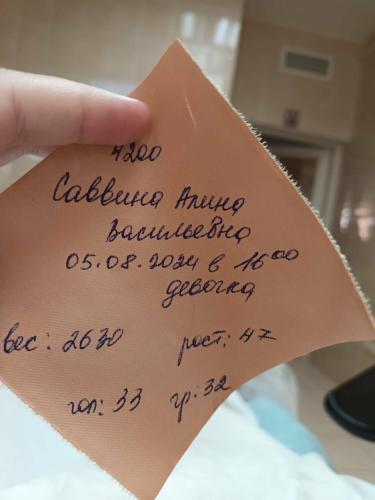 4200
Саввина Алина
Васильевна
05.08.2024 в 16⁰⁰
девочка
вес: 2630 рост: 47
гол: 33 гр: 32